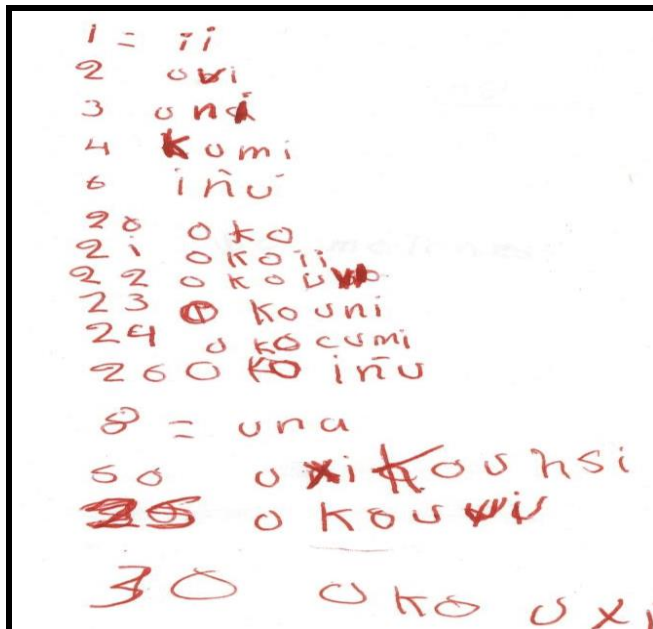 1 = ii
2 uvi
3 uni
4 kumi
6 iñu
20 oko
21 okoii
22 okouvi
23 o kouni
24 o kocumi
26 oko iñu
8 = una
50 uxi
o kou
30 oko uxi